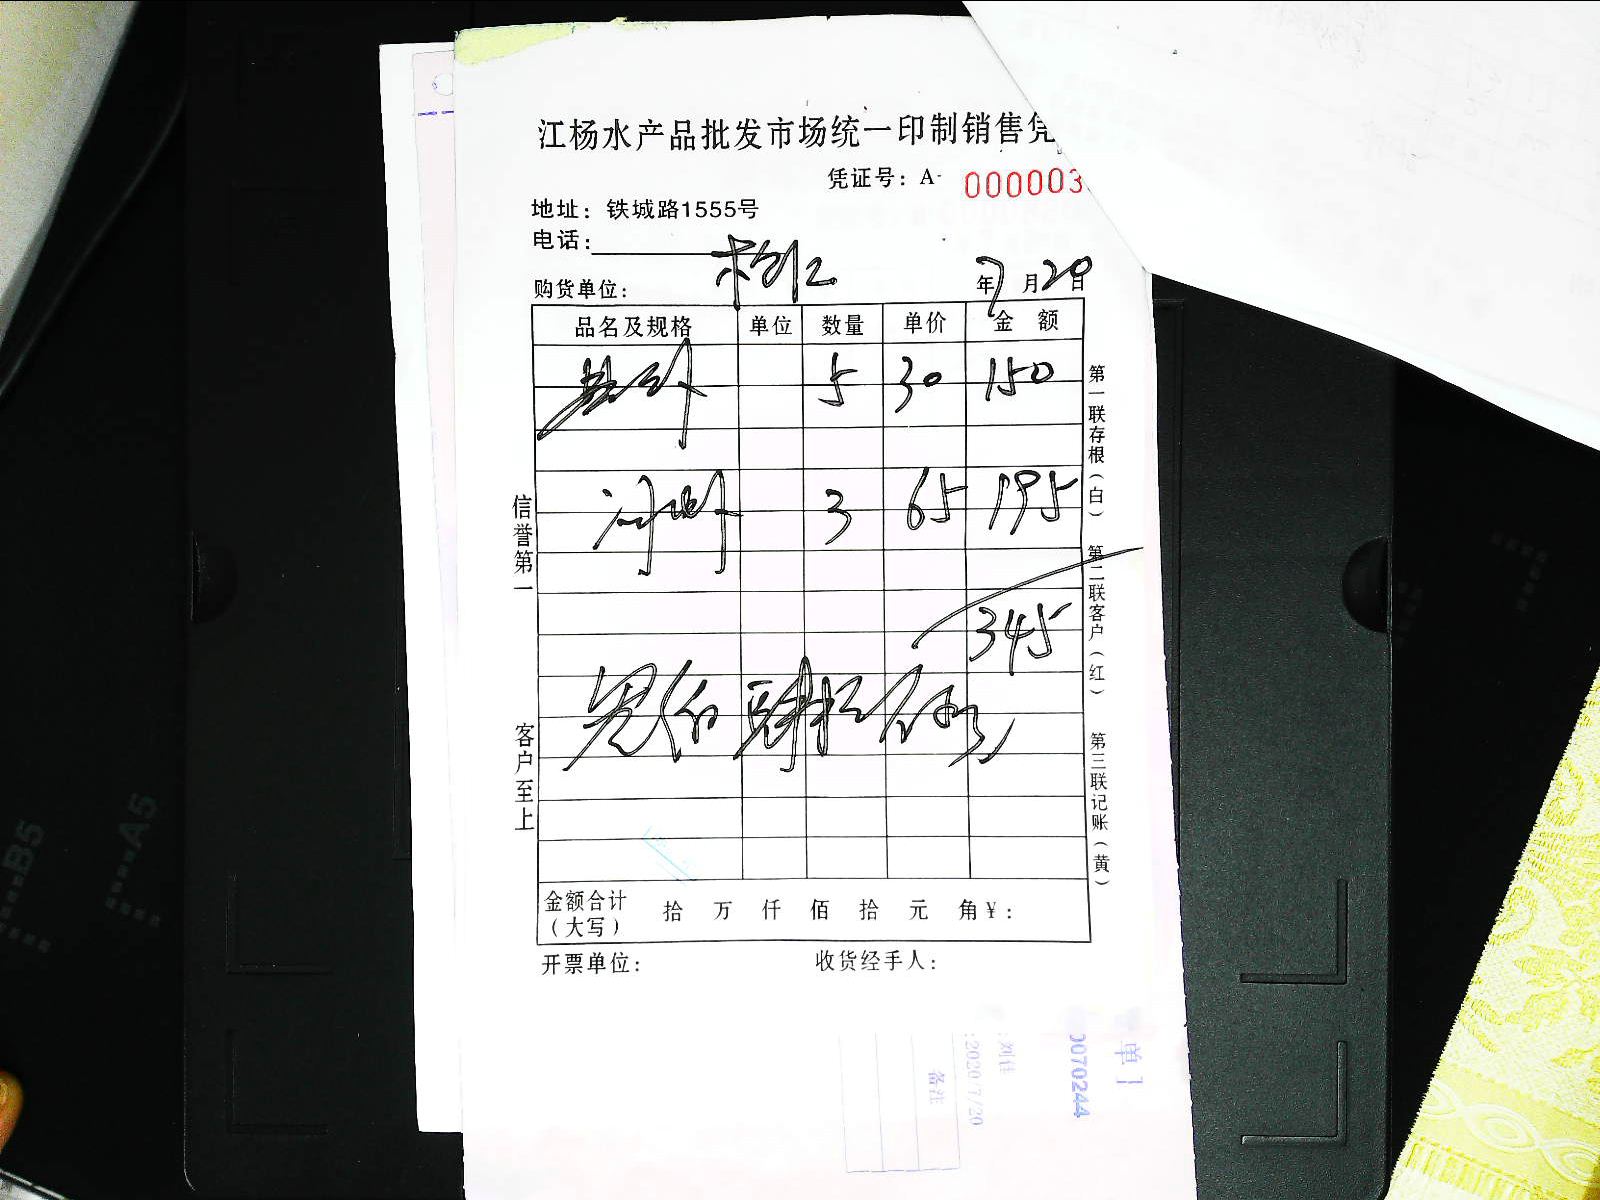 江杨水产品批发市场统一印制销售凭
凭证号：A- 000003
地址：铁城路1555号
电话：
购货单位： 年7月20日
品名及规格 单位 数量 单价 金 额
5 30 150
3 65 195
345
叁佰肆拾伍元
金额合计（大写） 拾 万 仟 佰 拾 元 角￥：
开票单位： 收货经手人：
信誉第一
客户至上
第一联存根（白）
第二联客户（红）
第三联记账（黄）
B5
A5
单
0070244
刘佳
:2020/7/20
备注